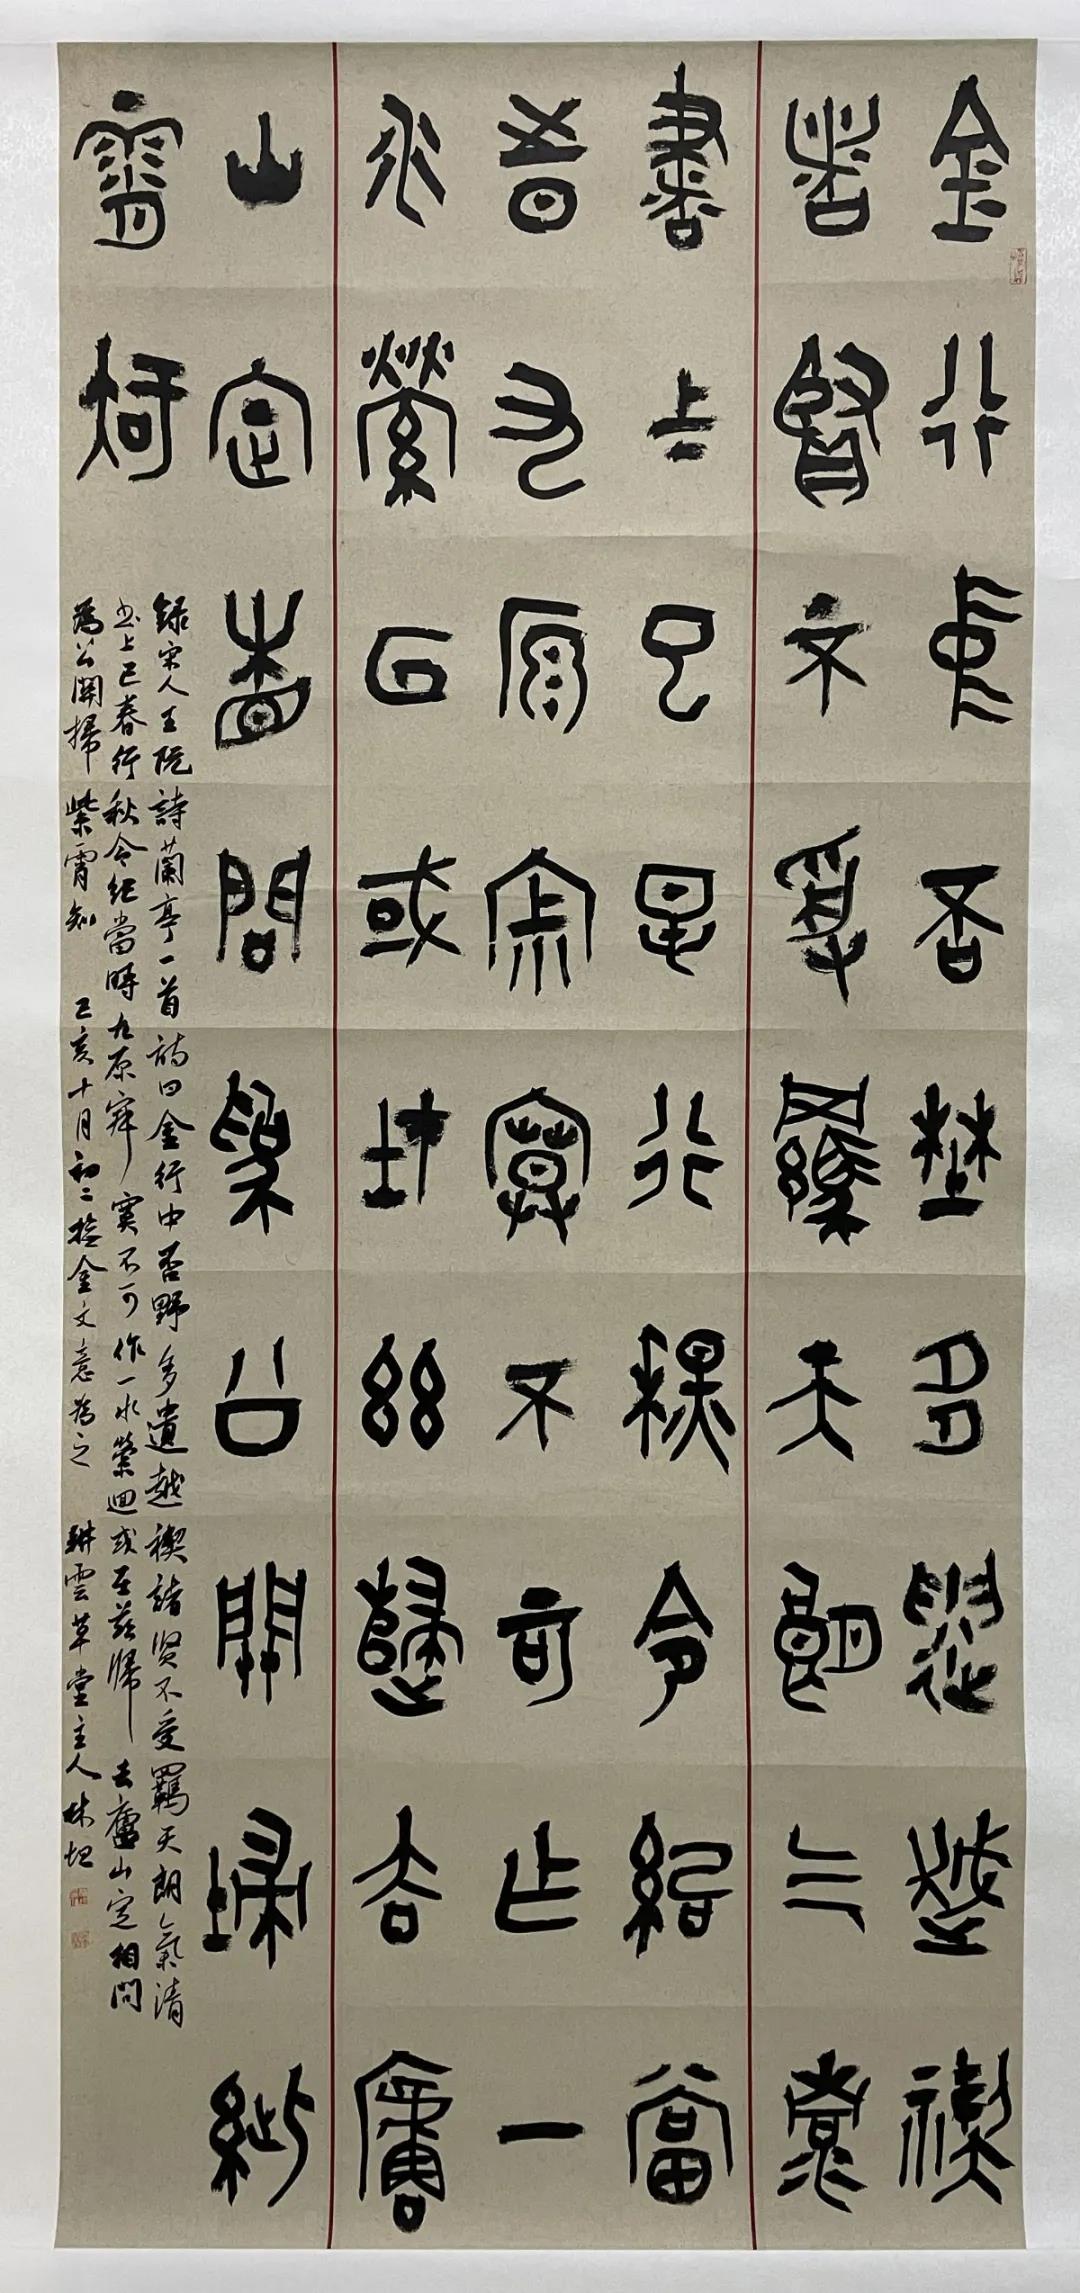 金行中否野多遺越禊
諸賢不受羈天朗氣清
書上巳春行秋令紀當
時九原寂寞不可作一
水縈回或在茲歸去廬
山定相問為公開掃紫
霄知
錄宋人王阮詩蘭亭一首詩曰金行中否野多遺越禊諸賢不受羈天朗氣清
書上巳春行秋令紀當時九原寂寞不可作一水縈迴或在茲歸去廬山定相問
為公開掃紫霄知 己亥十月初二擬金文意為之 耕雲草堂主人林坦